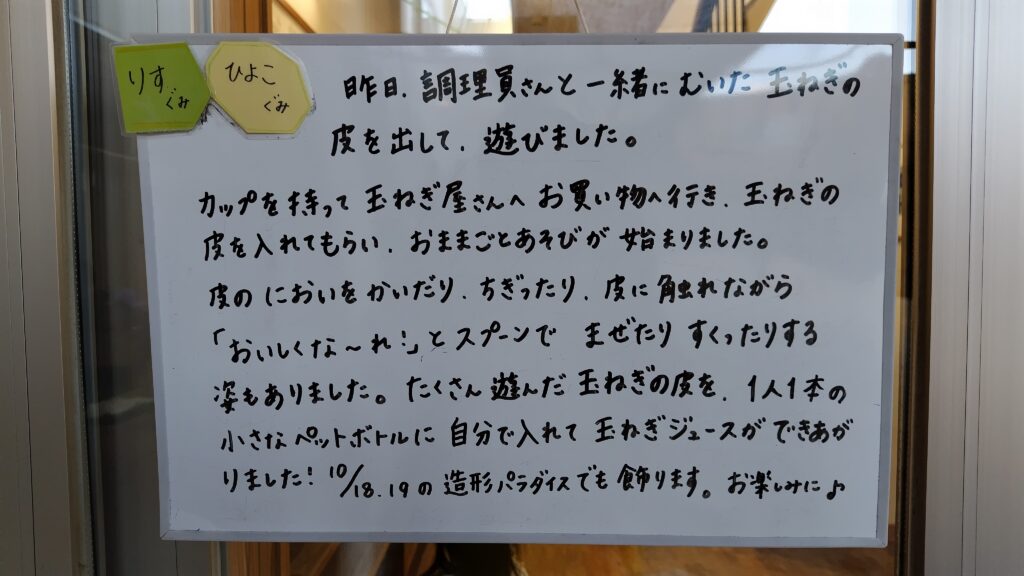 りす
ぐみ
ひよこ
ぐみ
昨日、調理員さんと一緒にむいた 玉ねぎの
皮を出して、遊びました。
カップを持って 玉ねぎ屋さんへ お買い物へ行き、玉ねぎの
皮を入れてもらい、おままごとあそびが 始まりました。
皮の においを かいだり、ちぎったり、皮に触れながら
「おいしくな〜れ!」と スプーンで まぜたり すくったりする
姿もありました。たくさん遊んだ 玉ねぎの皮を、1人1本の
小さなペットボトルに 自分で入れて 玉ねぎジュースが できあが
りました! 10/18.19の 造形パラダイスでも 飾ります。お楽しみに♪